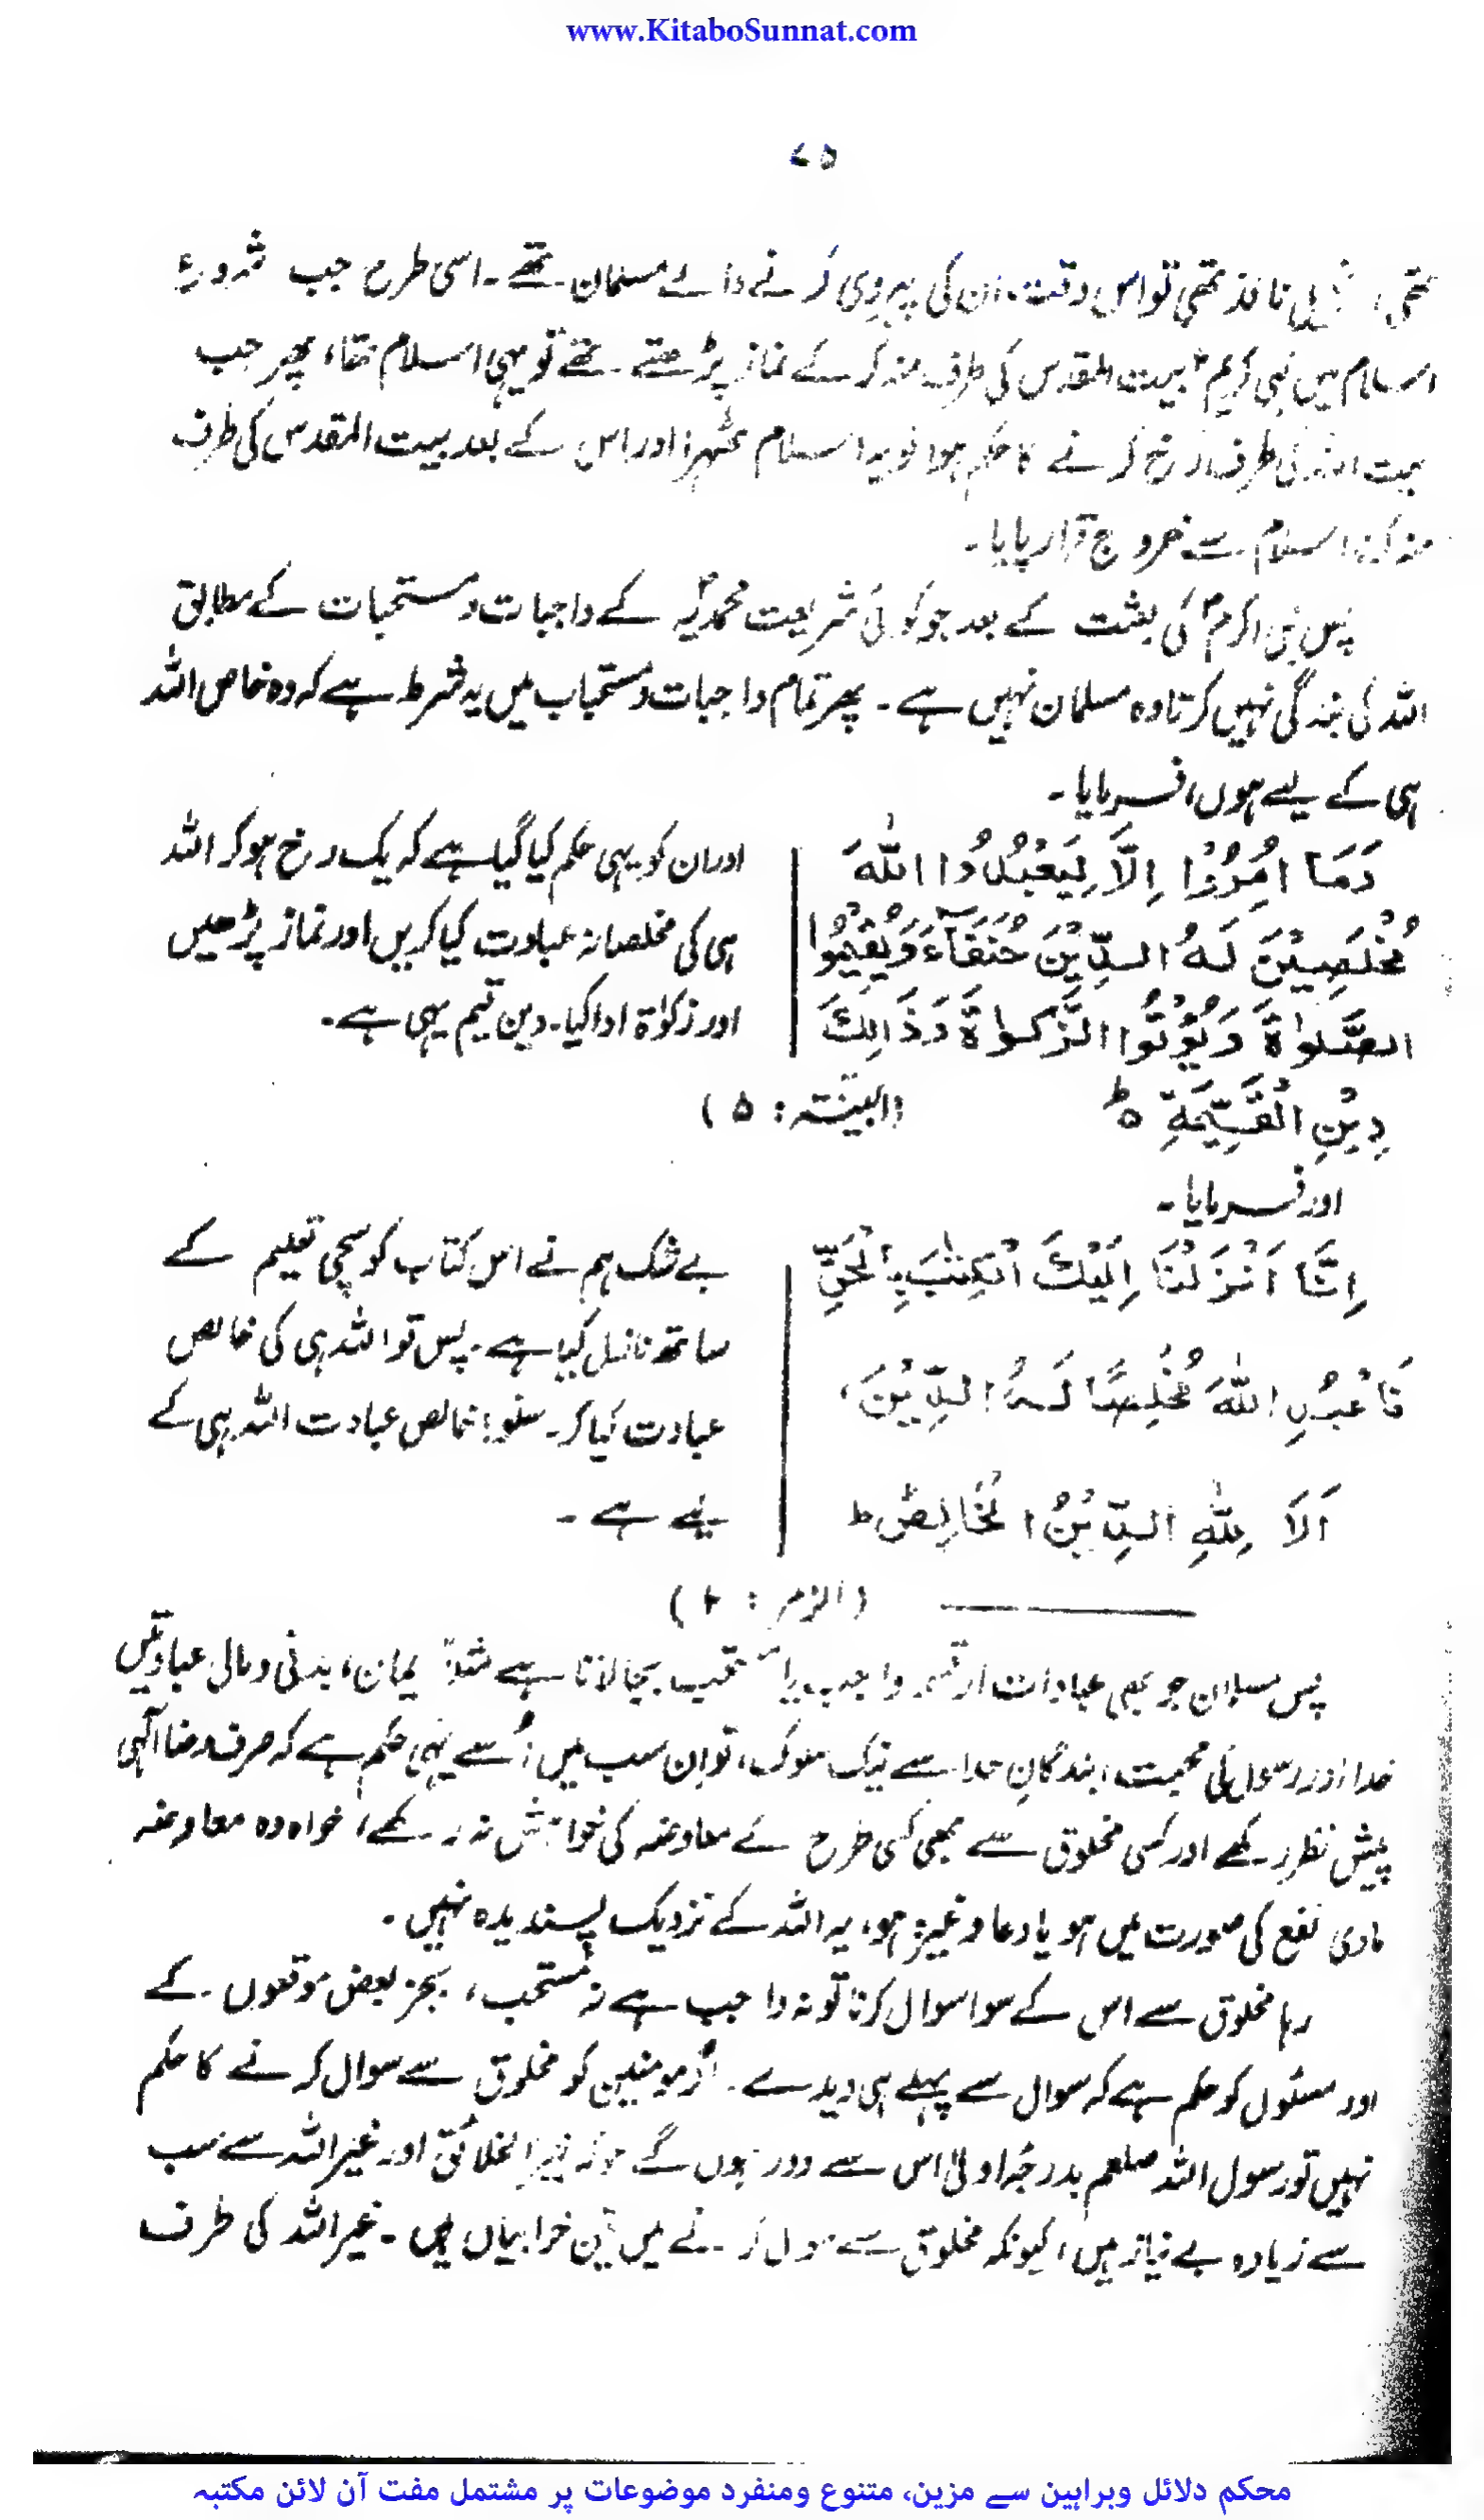 www.KitaboSunnat.com
۷۵
تھی، نافذ تھی تو اس وقت ان کی پیروی کرنے والے مسلمان تھے۔ اسی طرح جب شروع
اسلام میں نبی کریمؐ بیت المقدس کی طرف منہ کر کے نماز پڑھتے تھے تو یہی اسلام تھا، پھر جب
بیت اللہ کی طرف رخ کرنے کا حکم ہوا تو یہ اسلام ٹھہرا اور اس کے بعد بیت المقدس کی طرف
منہ کرنا اسلام سے خروج قرار پایا۔
پس نبی اکرمؐ کی بعثت کے بعد جو کوئی شریعت محمدیہؐ کے واجبات و مستحبات کے مطابق
اللہ کی بندگی نہیں کرتا وہ مسلمان نہیں ہے۔ پھر تمام واجبات و مستحباب میں یہ شرط ہے کہ وہ خاص اللہ
ہی کے لیے ہوں، فرمایا۔
وَمَا اُمِرُوْا اِلَّا لِيَعْبُدُوا اللّٰهَ
مُخْلِصِيْنَ لَهُ الدِّيْنَ حُنَفَآءَ وَيُقِيْمُوا
الصَّلٰوةَ وَيُؤْتُوا الزَّكٰوةَ وَذَالِكَ
دِيْنُ الْقَيِّمَةِ ہ ط
اور ان کو یہی حکم کیا گیا ہے کہ یک رخ ہو کر اللہ
ہی کی مخلصانہ عبادت کیا کریں اور نماز پڑھیں
اور زکوٰۃ ادا کیا۔ دین قیم یہی ہے۔
(البینۃ : ۵)
اور فرمایا۔
اِنَّا اَنْزَلْنَا اِلَيْكَ الْكِتٰبَ بِالْحَقِّ
فَاعْبُدِ اللّٰهَ مُخْلِصًا لَهُ الدِّيْنَ،
اَلَا لِلّٰهِ الدِّيْنُ الْخَالِصُ ط
بے شک ہم نے اس کتاب کو سچی تعلیم کے
ساتھ نازل کیا ہے۔ پس تو اللہ ہی کی خالص
عبادت کیا کر۔ سنو! خالص عبادت اللہ ہی کے
لیے ہے۔
(الزمر : )
پس مسلمان جو بھی عبادات از قسم واجب یا مستحب بجا لاتا ہے مثلاً ایمان، بدنی و مالی عبادتیں
خدا اور رسول کی محبت، بندگانِ خدا سے نیک سلوک، تو ان سب میں اُسے یہی حکم ہے کہ صرف رضا الٰہی
پیش نظر رکھے اور کسی مخلوق سے بھی کسی طرح کے معاوضہ کی خواہش نہ رکھے، خواہ وہ معاوضہ
مادی نفع کی صورت میں ہو یا دعا وغیرہ ہو، یہ اللہ کے نزدیک پسندیدہ نہیں۔
رہا مخلوق سے اس کے سوا سوال کرنا تو نہ واجب ہے نہ مستحب، بجز بعض موقعوں کے
اور مسئول کو حکم ہے کہ سوال سے پہلے ہی دیدے۔ اگر مومنین کو مخلوق سے سوال کرنے کا حکم
نہیں تو رسول اللہ صلعم بدرجہ اولیٰ اس سے دور ہوں گے خیر الخلائق اور غیر اللہ سے سب
سے زیادہ بے نیاز ہیں، کیونکہ مخلوق سے سوال کرنے میں تین خرابیاں ہیں۔ غیر اللہ کی طرف
محکم دلائل وبراہین سے مزین، متنوع ومنفرد موضوعات پر مشتمل مفت آن لائن مکتبہ